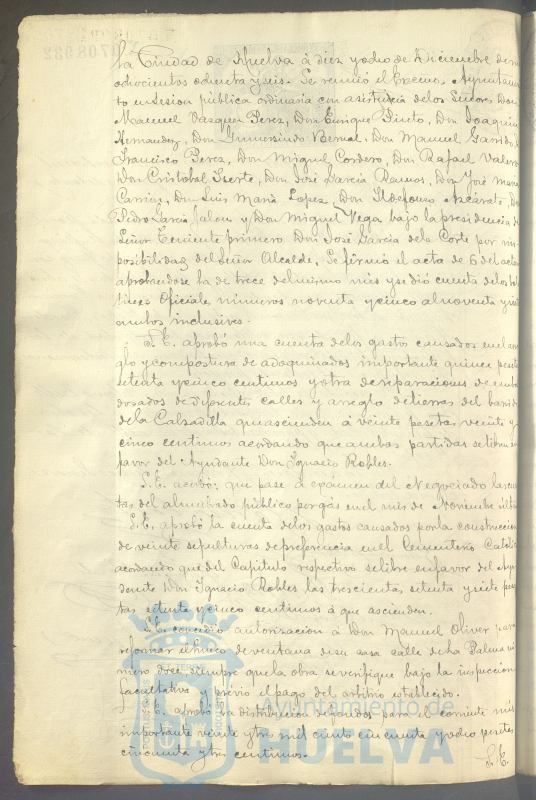 la Ciudad de Huelva á diez y ocho de Diciembre de mil
ochocientos ochenta y seis. Se reunió el Excmo. Ayuntamien
to en sesion pública ordinaria con asistencia de los Señores Don
Manuel Vazquez Perez, Don Enrique Pinto, Don Joaquin
Hernandez, Don Gumersindo Bernal, Don Manuel Garrido,
Francisco Perez, Don Miguel Cordero, Don Rafael Valero
Don Cristobal Iserte, Don José Garcia Ramos, Don José Maria
Carrion, Don Luis Maria Lopez, Don Ildefonso Azcárate, Don
Pedro Garcia Jalon y Don Miguel Vega bajo la presidencia del
Señor Teniente primero Don José Garcia de la Corte por im
posibilidad del Señor Alcalde. Se firmó el acta de 6 del actual
aprobandose la de trece del mismo mes y se dió cuenta de los bole
tines Oficiales números noventa y cinco al noventa y
ambos inclusives.
S.E. aprobó una cuenta de los gastos causados en el arre
glo y compostura de adoquinados importante quince pesetas
setenta y cinco centimos y otra de reparaciones de
de diferentes calles y arreglo de tierras del barrio
de la Calzadilla que ascienden á veinte pesetas veinte y
cinco centimos acordando que ambas partidas se libren en
favor del Ayudante Don Ignacio Robles.
S.E. acordó: que pase á examen del Negociado las cuen
tas del alumbrado público por gas en el mes de Noviembre último
S.E. aprobó la cuenta de los gastos causados por la construccion
de veinte sepulturas de preferencia en el Cementerio Catolico
acordando que del Capitulo respectivo se libre en favor del Ayu
dante Don Ignacio Robles las trescientas setenta y siete pese
tas setenta y cinco centimos á que ascienden.
S.E. concedió autorizacion á Don Manuel Oliver para
reformar el hueco de ventana de su casa calle de la Palma nú
mero doce, siempre que la obra se verifique bajo la inspeccion
facultativa y previo el pago del arbitrio establecido.
S.E. aprobó la distribucion de fondos para el corriente mes
importante veinte y tres mil ciento cincuenta y ocho pesetas
cincuenta y tres centimos.
S.E.
Ayuntamiento de
HUELVA